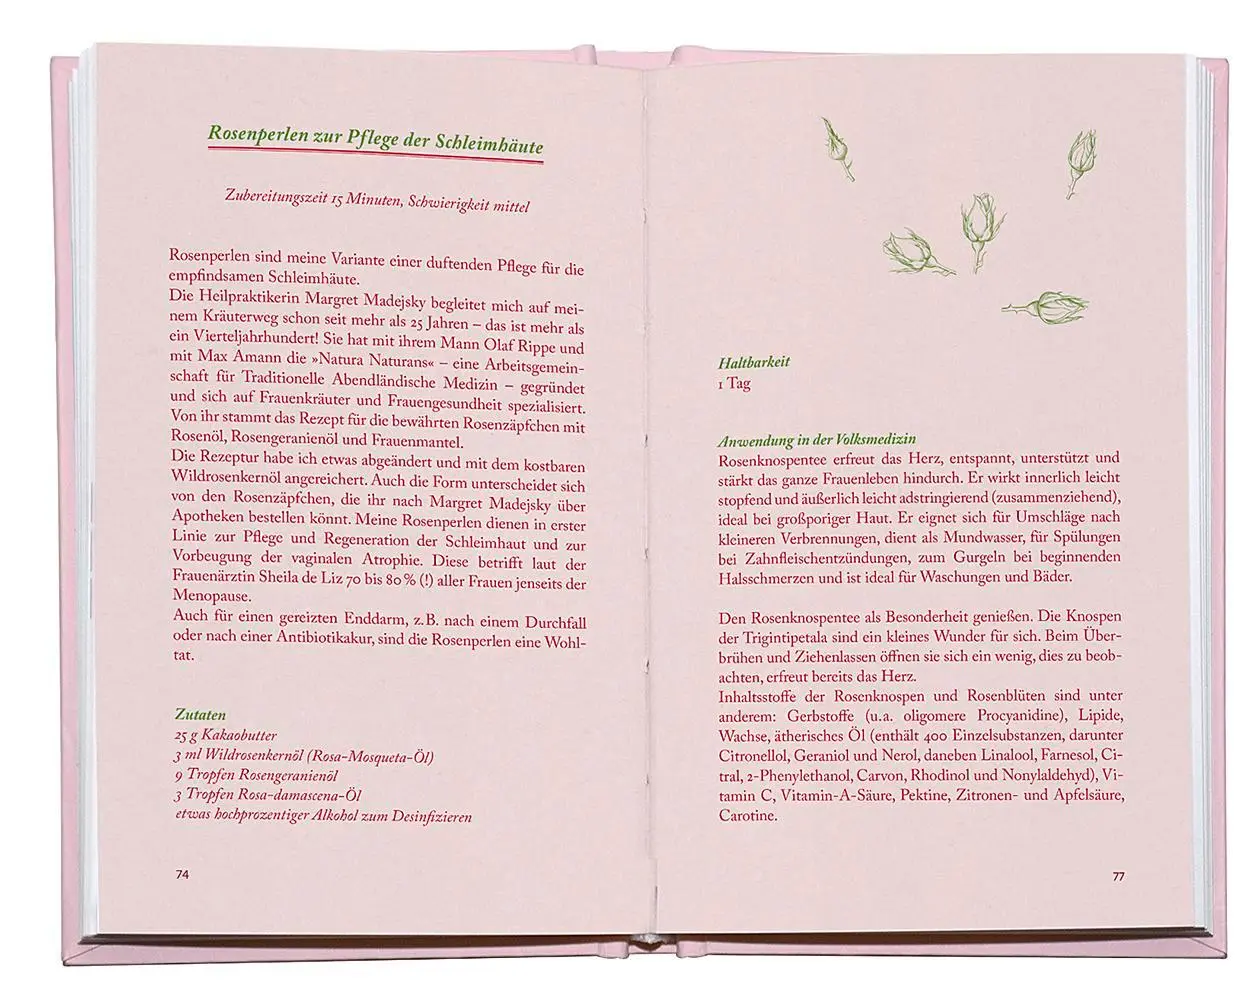 Rosenperlen zur Pflege der Schleimhäute
Zubereitungszeit 15 Minuten, Schwierigkeit mittel
Rosenperlen sind meine Variante einer duftenden Pflege für die
empfindsamen Schleimhäute.
Die Heilpraktikerin Margret Madejsky begleitet mich auf mei-
nem Kräuterweg schon seit mehr als 25 Jahren – das ist mehr als
ein Vierteljahrhundert! Sie hat mit ihrem Mann Olaf Rippe und
mit Max Amann die »Natura Naturans« – eine Arbeitsgemein-
schaft für Traditionelle Abendländische Medizin – gegründet
und sich auf Frauenkräuter und Frauengesundheit spezialisiert.
Von ihr stammt das Rezept für die bewährten Rosenzäpfchen mit
Rosenöl, Rosengeranienöl und Frauenmantel.
Die Rezeptur habe ich etwas abgeändert und mit dem kostbaren
Wildrosenkernöl angereichert. Auch die Form unterscheidet sich
von den Rosenzäpfchen, die ihr nach Margret Madejsky über
Apotheken bestellen könnt. Meine Rosenperlen dienen in erster
Linie zur Pflege und Regeneration der Schleimhaut und zur
Vorbeugung der vaginalen Atrophie. Diese betrifft laut der
Frauenärztin Sheila de Liz 70 bis 80 % (!) aller Frauen jenseits der
Menopause.
Auch für einen gereizten Enddarm, z. B. nach einem Durchfall
oder nach einer Antibiotikakur, sind die Rosenperlen eine Wohl-
tat.
Zutaten
25 g Kakaobutter
3 ml Wildrosenkernöl (Rosa-Mosqueta-Öl)
9 Tropfen Rosengeranienöl
3 Tropfen Rosa-damascena-Öl
etwas hochprozentiger Alkohol zum Desinfizieren
74
Haltbarkeit
1 Tag
Anwendung in der Volksmedizin
Rosenknospentee erfreut das Herz, entspannt, unterstützt und
stärkt das ganze Frauenleben hindurch. Er wirkt innerlich leicht
stopfend und äußerlich leicht adstringierend (zusammenziehend),
ideal bei großporiger Haut. Er eignet sich für Umschläge nach
kleineren Verbrennungen, dient als Mundwasser, für Spülungen
bei Zahnfleischentzündungen, zum Gurgeln bei beginnenden
Halsschmerzen und ist ideal für Waschungen und Bäder.
Den Rosenknospentee als Besonderheit genießen. Die Knospen
der Trigintipetala sind ein kleines Wunder für sich. Beim Über-
brühen und Ziehenlassen öffnen sie sich ein wenig, dies zu beob-
achten, erfreut bereits das Herz.
Inhaltsstoffe der Rosenknospen und Rosenblüten sind unter
anderem: Gerbstoffe (u.a. oligomere Procyanidine), Lipide,
Wachse, ätherisches Öl (enthält 400 Einzelsubstanzen, darunter
Citronellol, Geraniol und Nerol, daneben Linalool, Farnesol, Ci-
tral, 2-Phenylethanol, Carvon, Rhodinol und Nonylaldehyd), Vi-
tamin C, Vitamin-A-Säure, Pektine, Zitronen- und Apfelsäure,
Carotine.
77